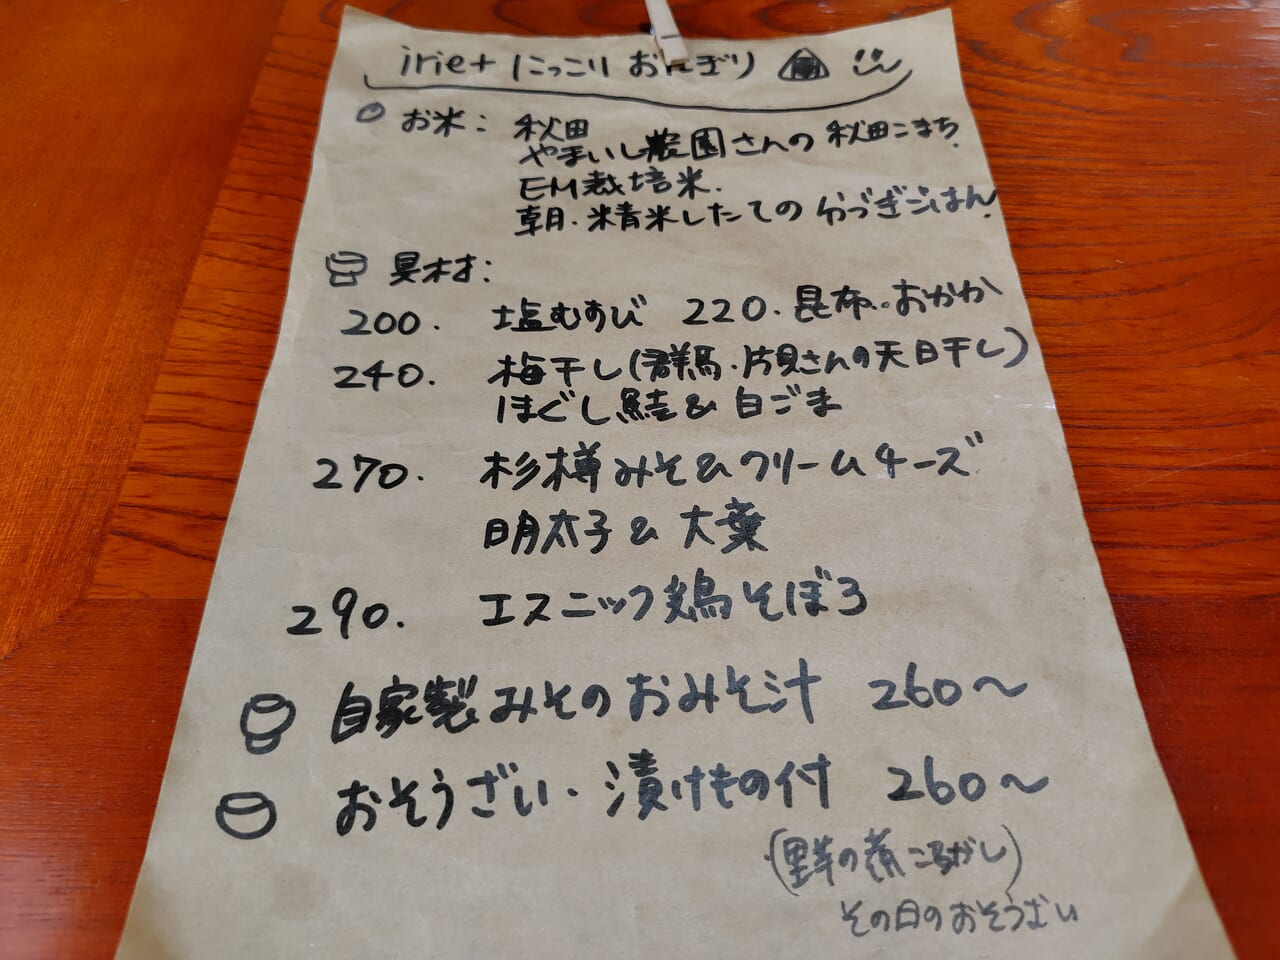 irie+ にっこり おにぎり
お米: 秋田
やまいし農園さんの 秋田こまち.
EM栽培米.
朝・精米したての 分づきごはん.
具材:
200. 塩むすび 220. 昆布.. おかか
240. 梅干し(群馬・片貝さんの天日干し)
ほぐし鮭& 白ごま
270. 杉樽みそ&クリームチーズ
明太子 & 大葉
290. エスニック鶏そぼろ
自家製みそのおみそ汁 260〜
おそうざい・漬けもの付 260〜
(里芋の煮ころがし)
その日のおそうざい